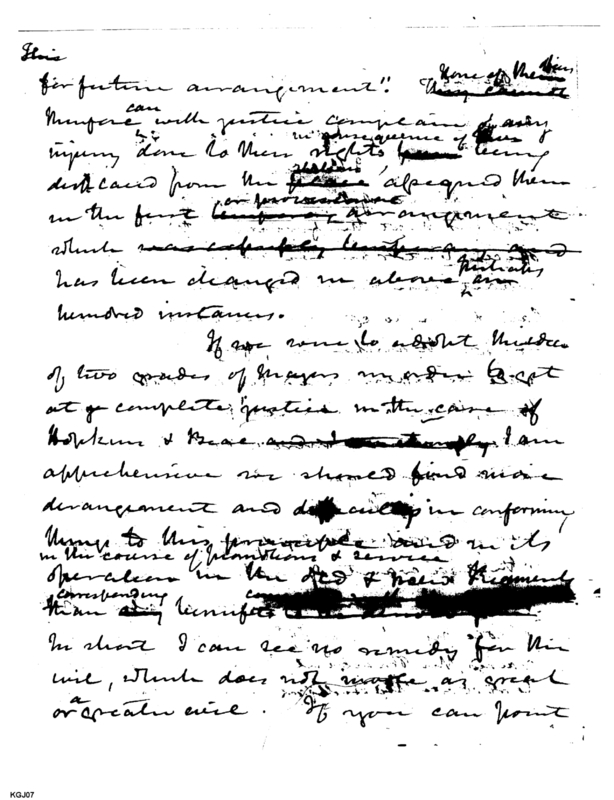 This
for future arrangement". None of them
therefore can with justice complain of any
injury done to their rights in consequence of being
displaced from the station assigned them
in the first or provisional arrangement
which was
has been changed in above particular an
hundred instances.
If we were to adopt the idea
of two grades of Mayors in order to get
at ye complete justice in the case of
Hopkins & I am
apprehensive we should find more
derangement and difficulty in conforming
things to this principle and in its
in the course of promotions & service
operation in the old & new Regiments
than corresponding benefits
In short I can see no remedy for this
evil, which does not involve as great
or a greater evil. If you can point
KGJ07